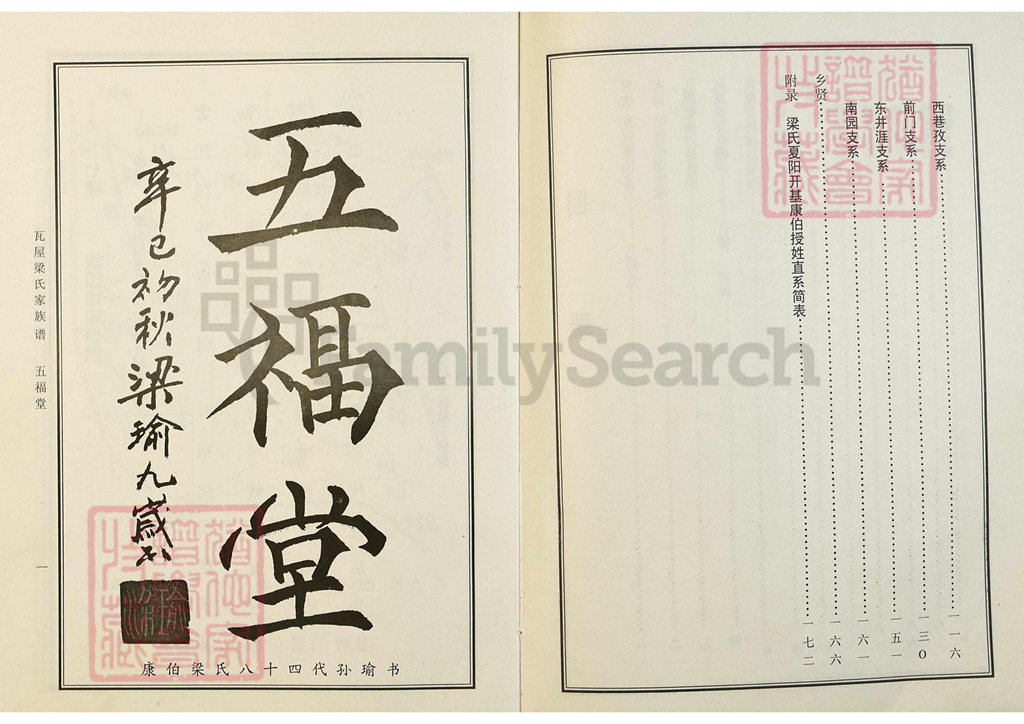 西巷孜支系 一一六
前门支系 一三〇
东井涯支系 一五一
南园支系 一六一
乡贤 一六六
附录 梁氏夏阳开基康伯授姓直系简表 一七二
五福堂
辛巳初秋梁瑜九岁书
康伯梁氏八十四代孙瑜书
瓦屋梁氏家族谱 五福堂
一
FamilySearch